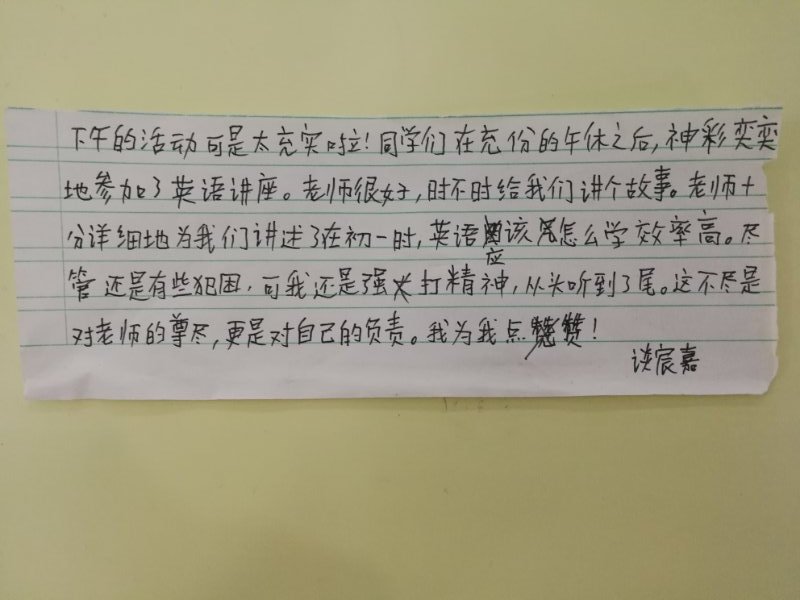 下午的活动可是太充实啦！同学们在充份的午休之后，神彩奕奕
地参加了英语讲座。老师很好，时不时给我们讲个故事。老师十
分详细地为我们讲述了在初一时，英语应该怎么学效率高。尽
管还是有些犯困，可我还是强打精神，从头听到了尾。这不尽是
对老师的尊尽，更是对自己的负责。我为我点赞！
谈宸嘉